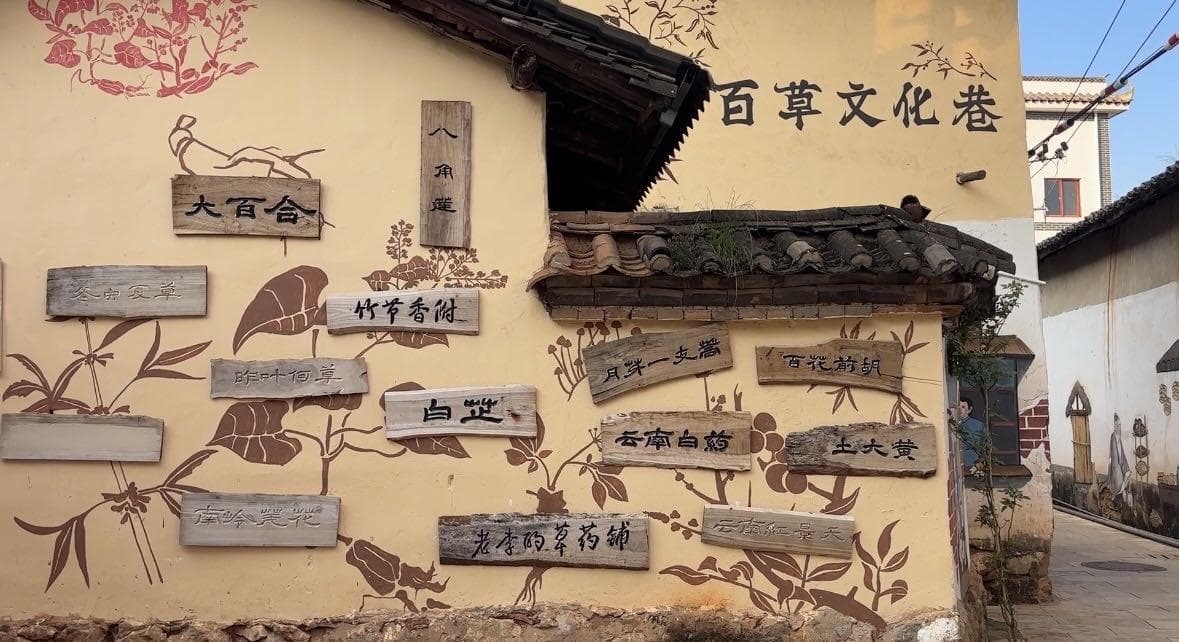 百草文化巷
八角莲
大百合
竹节香附
月芽一支蒿
百花前胡
昨叶何草
白芷
云南白药
土大黄
南岭荛花
老李的草药铺
云南红景天